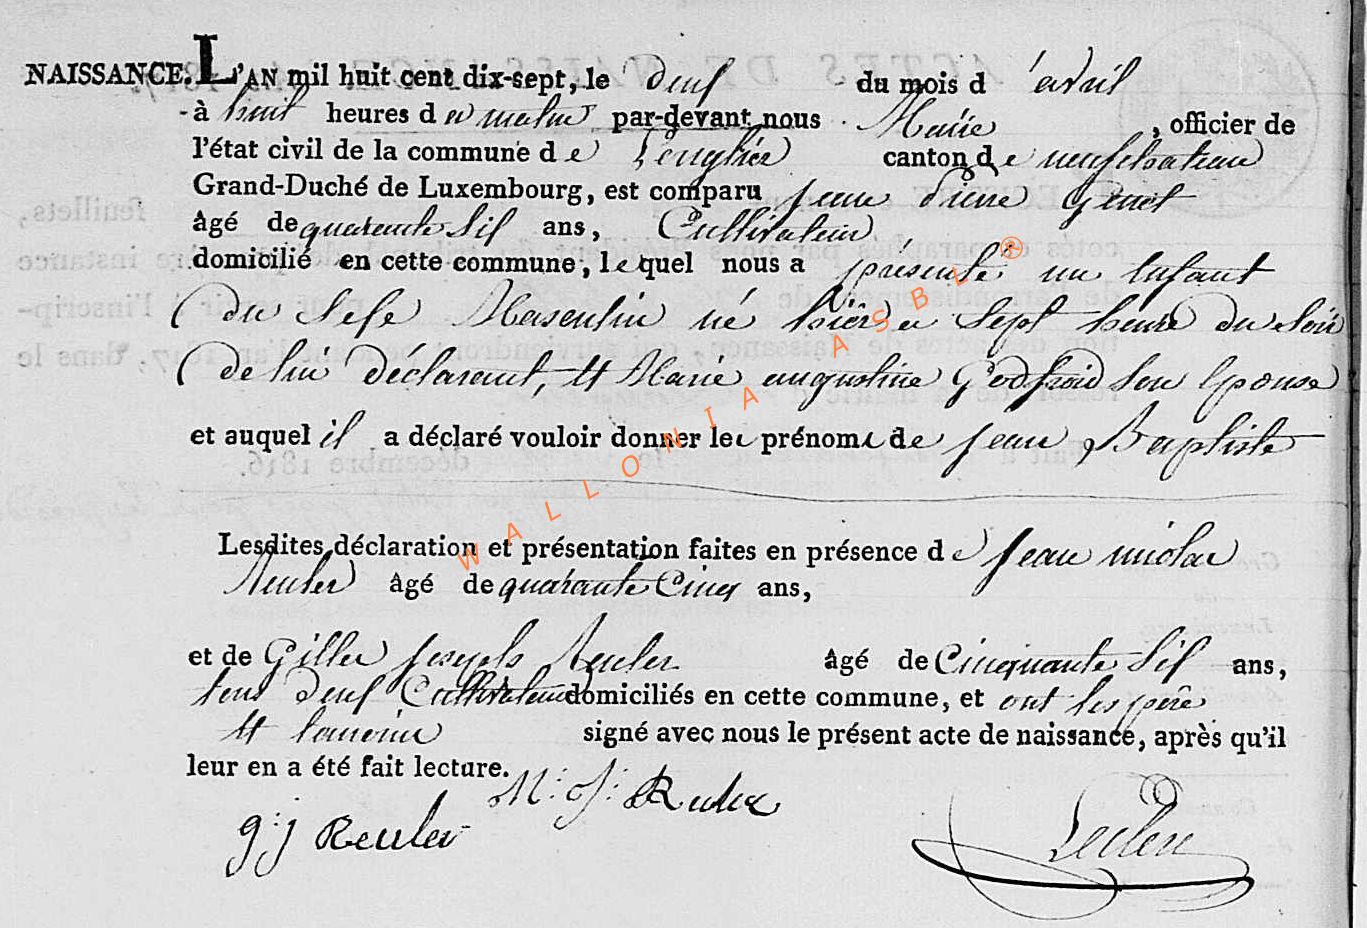 NAISSANCE. L'AN mil huit cent dix-sept, le deux du mois d'avril
à huit heures du matin par-devant nous Maire, officier de
l'état civil de la commune de Longlier canton de neufchateau
Grand-Duché de Luxembourg, est comparu jean pierre Genet
âgé de quarante Six ans, Cultivateur
domicilié en cette commune, lequel nous a présenté un Enfant
du Sexe Masculin né hier a Sept heure du Soir
de lui déclarant, et Marie augustine Godfroid Son Epouse
et auquel il a déclaré vouloir donner les prénoms de jean Baptiste
Lesdites déclaration et présentation faites en présence de jean nicolas
Reuler âgé de quarante Cinq ans,
et de Gilles joseph Reuler âgé de Cinquante Six ans,
tous deux Cultivateurs domiciliés en cette commune, et ont les père
et temoins signé avec nous le présent acte de naissance, après qu'il
leur en a été fait lecture.
N: J: Reuler
g: j Reuler
Leclere
WALLONIA ASBL ®